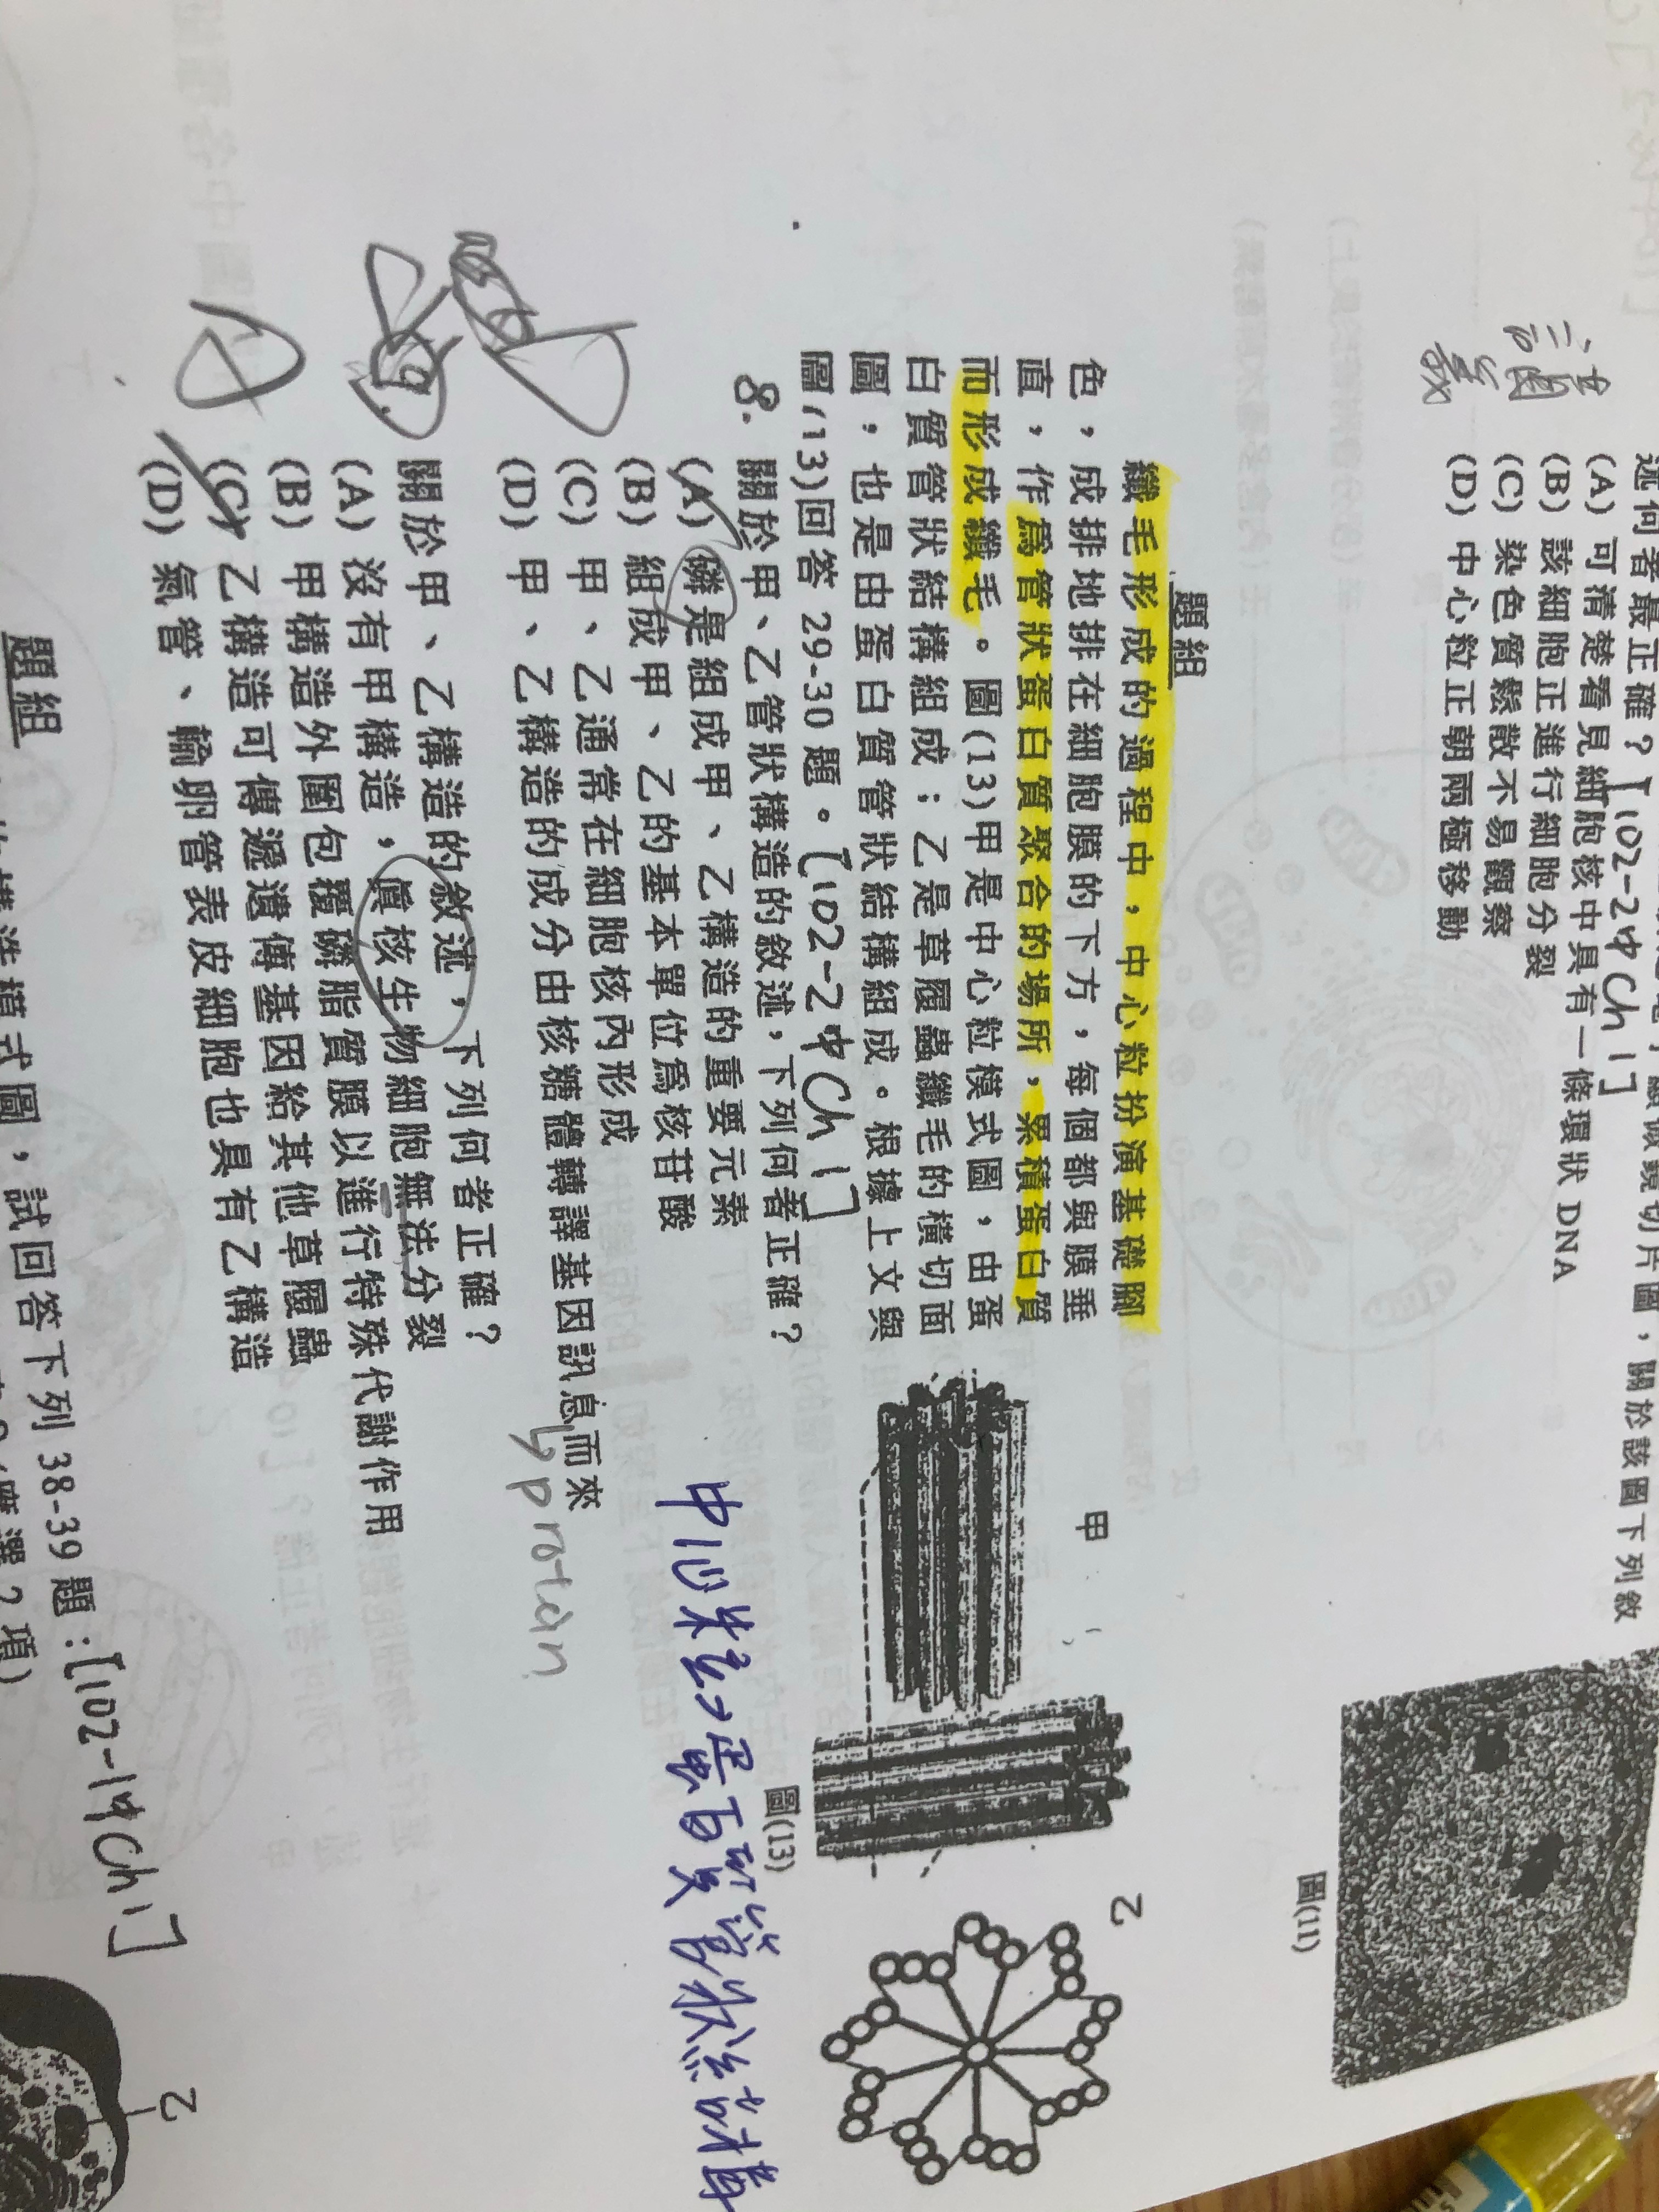 述何者最正確？【102-2中Ch1】
(A) 可清楚看見細胞核中具有一條環狀 DNA
(B) 該細胞正進行細胞分裂
(C) 染色質鬆散不易觀察
(D) 中心粒正朝兩極移動
圖(11)
題組
纖毛形成的過程中，中心粒扮演基礎腳
色，成排地排在細胞膜的下方，每個都與膜垂
直，作為管狀蛋白質聚合的場所，累積蛋白質
而形成纖毛。圖(13)甲是中心粒模式圖，由蛋
白質管狀結構組成；乙是草履蟲纖毛的橫切面
圖，也是由蛋白質管狀結構組成。根據上文與
圖(13)回答 29-30 題。【102-2中Ch1】
甲
乙
圖(13)
中心粒之蛋白質管狀結構
8. 關於甲、乙管狀構造的敘述，下列何者正確？
(A) 磷是組成甲、乙構造的重要元素
(B) 組成甲、乙的基本單位為核苷酸
(C) 甲、乙通常在細胞核內形成
(D) 甲、乙構造的成分由核糖體轉譯基因訊息而來
protein
關於甲、乙構造的敘述，下列何者正確？
(A) 沒有甲構造，真核生物細胞無法分裂
(B) 甲構造外圍包覆磷脂質膜以進行特殊代謝作用
(C) 乙構造可傳遞遺傳基因給其他草履蟲
(D) 氣管、輸卵管表皮細胞也具有乙構造
題組
構造模式圖，試回答下列 38-39 題：【102-1中Ch1】
乙